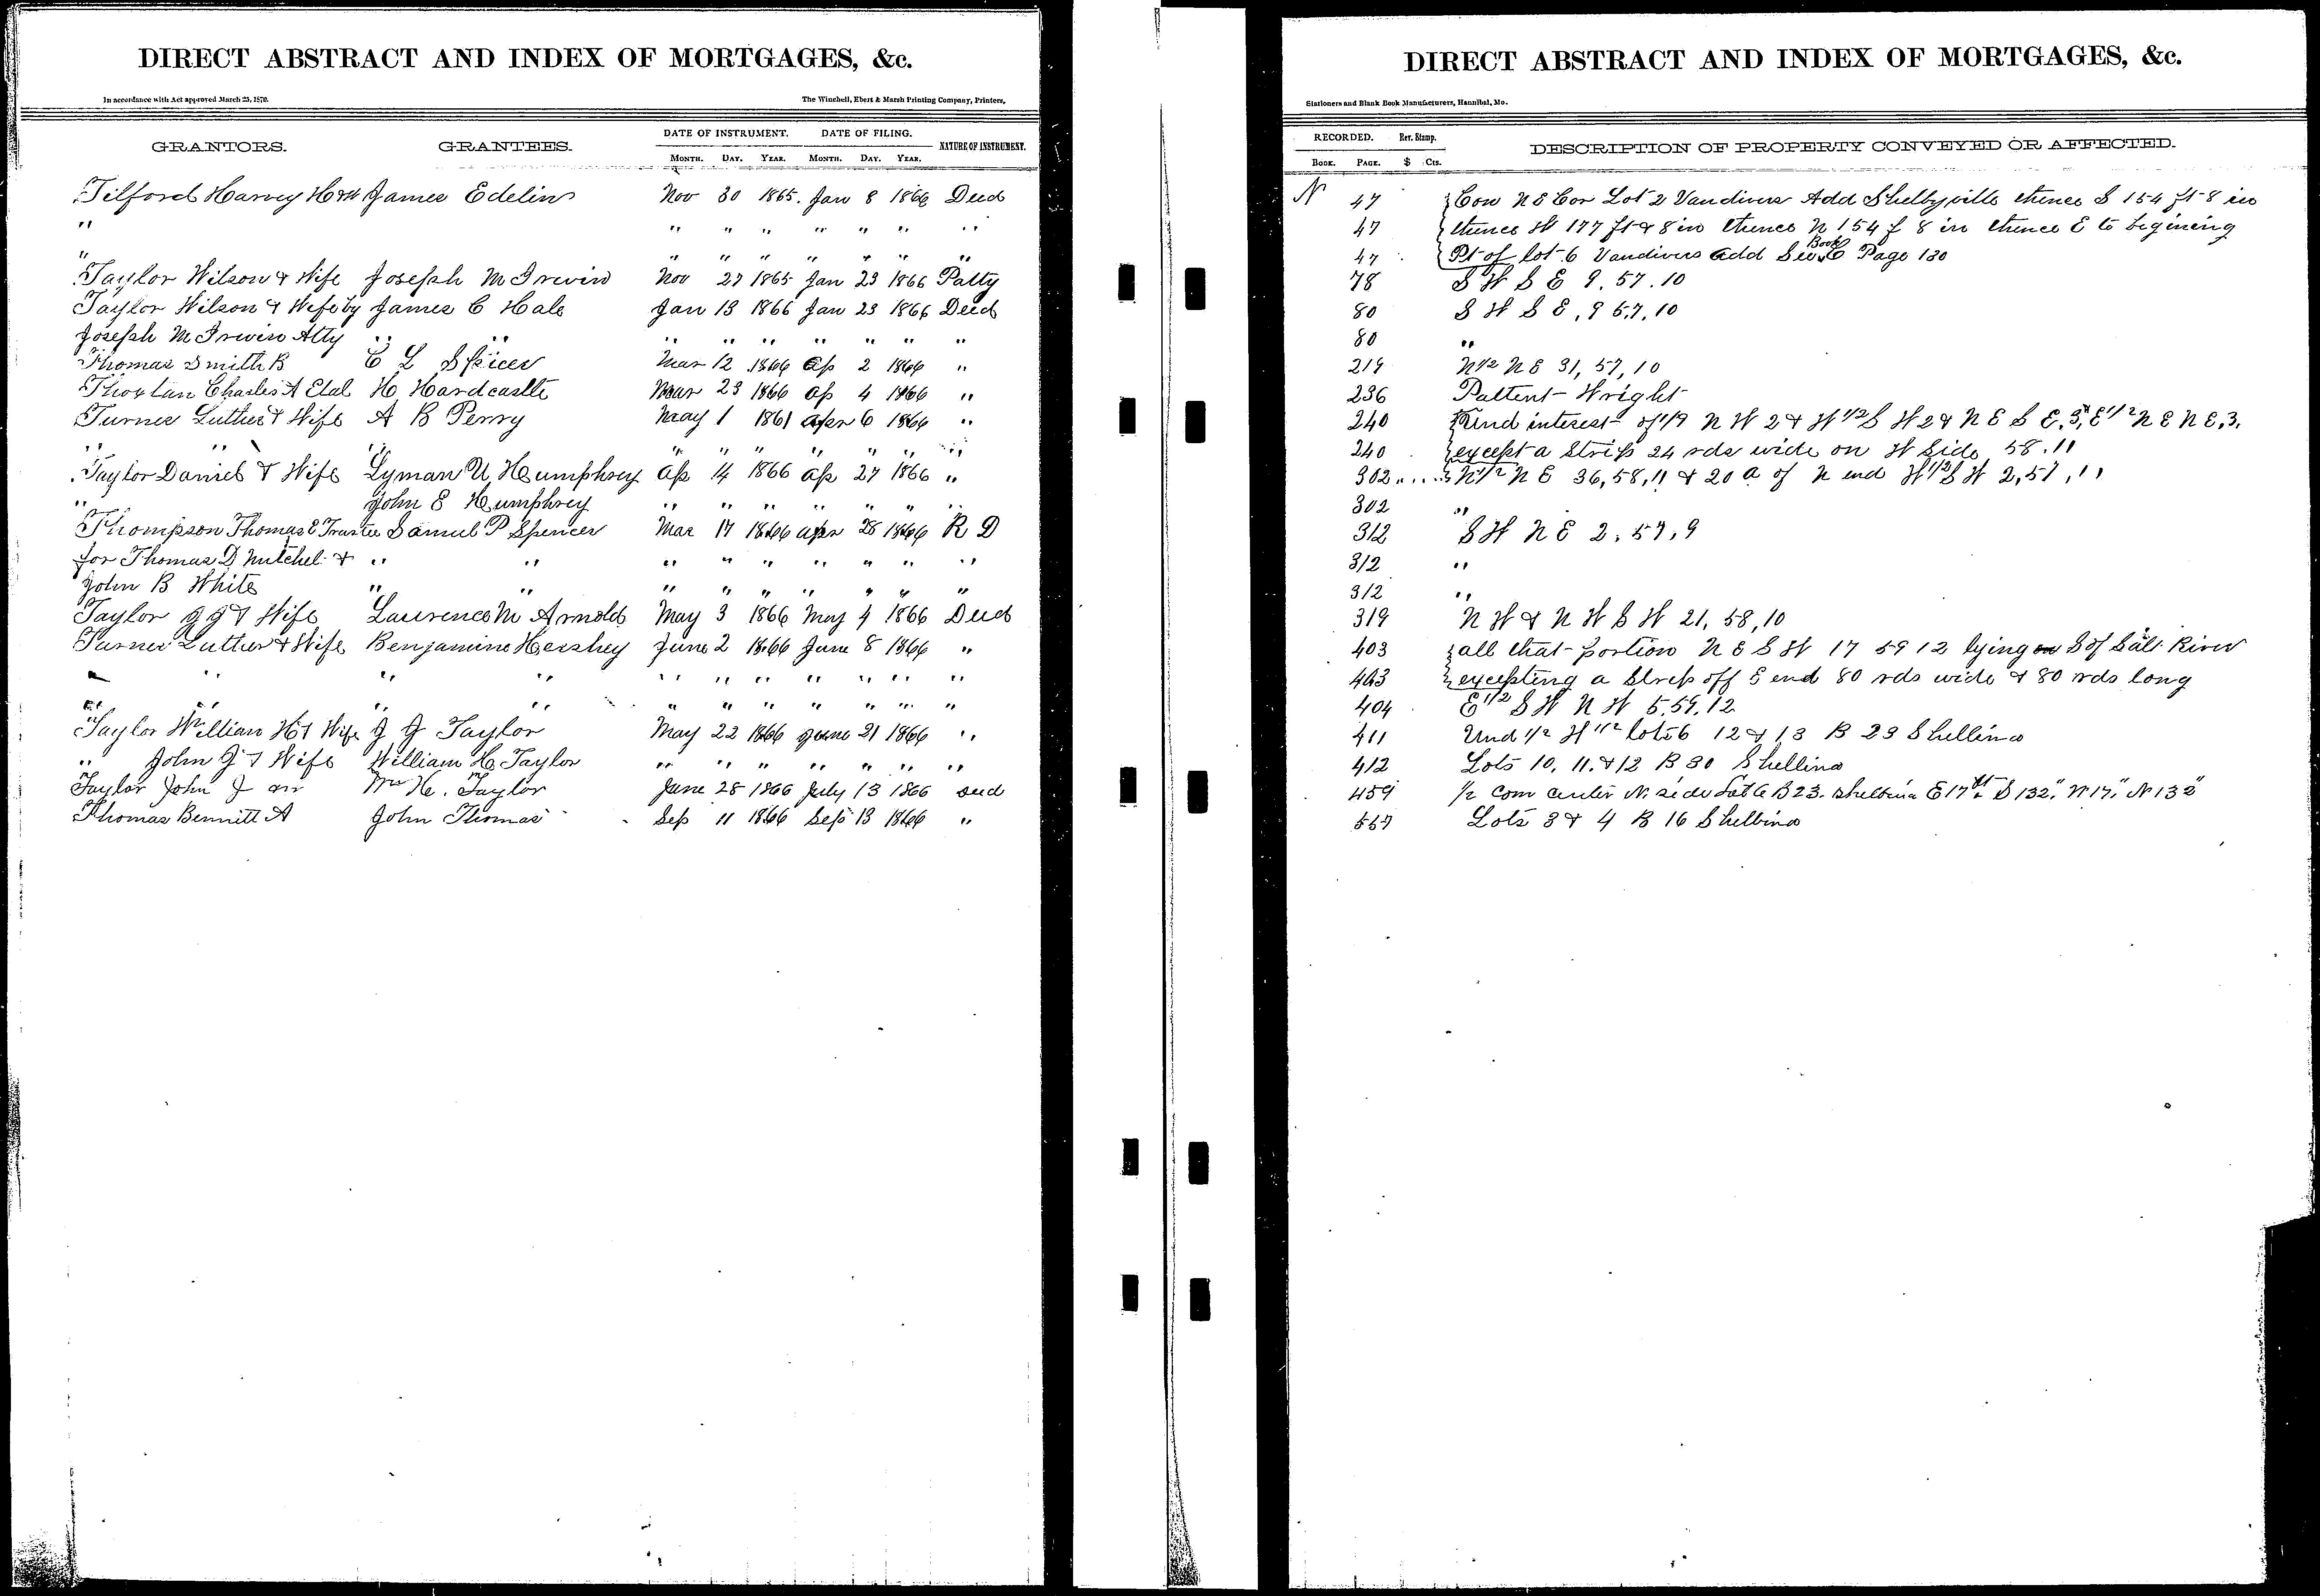 DIRECT ABSTRACT AND INDEX OF MORTGAGES, &c.
In accordance with Act approved March 25, 1870. The Winchell, Ebert & Marsh Printing Company, Printers,
GRANTORS. GRANTEES. DATE OF INSTRUMENT. DATE OF FILING. NATURE OF INSTRUMENT.
MONTH. DAY. YEAR. MONTH. DAY. YEAR.
Tilford Harvey H & W James Edelin Nov 30 1865 Jan 8 1866 Deed
" " " " " " " "
" " " " " " " "
Taylor Wilson & Wife Joseph M Irwin Nov 27 1865 Jan 23 1866 Patty
Taylor Wilson & Wife by James C Hale Jan 13 1866 Jan 23 1866 Deed
Joseph M Irwin Atty " " " " " " " " "
Thomas Smith B C L Spicer Mar 12 1866 Ap 2 1866 "
Charles A Etal H Hardcastle Mar 23 1866 Ap 4 1866 "
Turner Luther & Wife A B Perry May 1 1861 Apr 6 1866 "
" " " " " " " " " " "
Taylor Daniel & Wife Lyman U Humphrey Ap 14 1866 Ap 27 1866 "
" John E Humphrey " " " " " " "
Thompson Thomas E Trustee Samuel P Spencer Mar 17 1866 Apr 28 1866 R D
for Thomas D Mitchel & " " " " " " " " "
John B White " " " " " " " " "
Taylor J J & Wife Laurence M Arnold May 3 1866 May 4 1866 Deed
Turner Luther & Wife Benjamine Hershey June 2 1866 June 8 1866 "
" " " " " " " " " " "
" " " " " " " " " " "
Taylor William H & Wife J J Taylor May 22 1866 June 21 1866 "
" John J & Wife William H Taylor " " " " " " "
Taylor John J Wm H. Taylor June 28 1866 July 13 1866 Deed
Thomas Bennitt A John Thomas Sep 11 1866 Sep 13 1866 "
DIRECT ABSTRACT AND INDEX OF MORTGAGES, &c.
Stationers and Blank Book Manufacturers, Hannibal, Mo.
RECORDED. Rev. Stamp. DESCRIPTION OF PROPERTY CONVEYED OR AFFECTED.
BOOK. PAGE. $ Cts.
N 47 Com N E Cor Lot 2 Vandivers Add Shelbyville thence S 154 ft 8 in
47 thence W 177 ft & 8 in thence N 154 f 8 in thence E to begining
47 Pt of lot 6 Vandivers Add See Book C Page 130
78 S W S E 9.57.10
80 S W S E, 9 57, 10
80 "
219 N 1/2 N E 31, 57, 10
236 Pattent Wright
240 Und interest of 1/9 N W 2 & W 1/2 S W 2 & N E S E, 3, E 1/2 N E N E, 3,
240 except a Strip 24 rds wide on W Side 58.11
302 N 1/2 N E 36, 58, 11 & 20 a of N end W 1/2 S W 2, 57, 11
302 "
312 S W N E 2, 57, 9
312 "
312 "
319 N W & N W S W 21, 58, 10
403 all that portion N E S W 17 59 12 lying S of Salt River
403 excepting a Strip off S end 80 rds wide & 80 rds long
404 E 1/2 S W N W 5.59.12
411 Und 1/2 W 1/2 lots 6 12 & 13 B 23 Shelbina
412 Lots 10, 11 & 12 B 30 Shelbina
459 1/2 Com center N. side Lot 6 B 23. Shelbina E 17 ft S 132" W 17" N 132"
557 Lots 3 & 4 B 16 Shelbina